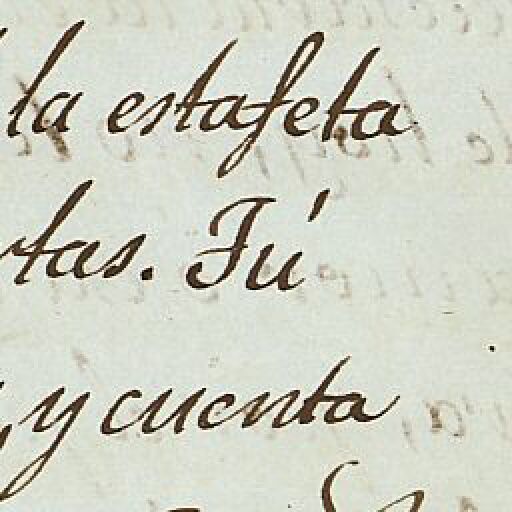 la estafeta
rtas. Tú
, y cuenta